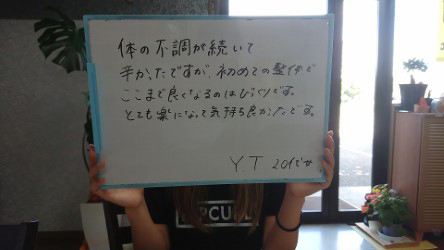 体の不調が続いて
辛かったですが、初めての整体で
ここまで良くなるのはびっくりです。
とても楽になって気持ち良かったです。
Y.T 20代女